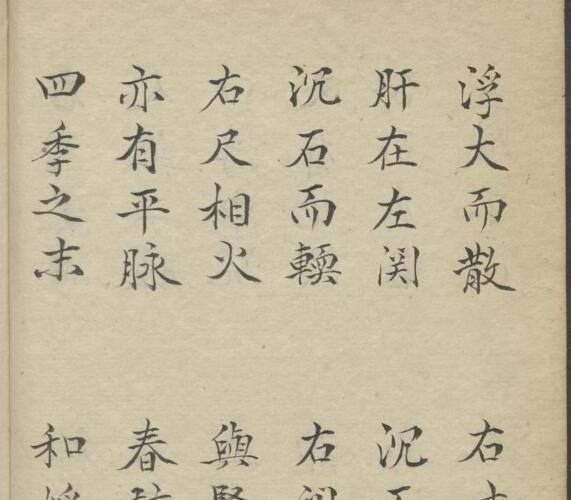 浮大而散 右
肝在左関 沉
沉石而輭 右
右尺相火 與
亦有平脉 春
四季之末 和